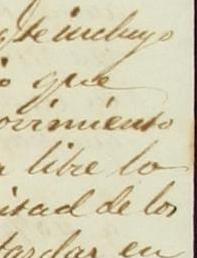 que incluyo
o que
ovimiento
a libre lo
itad de los
tardar en